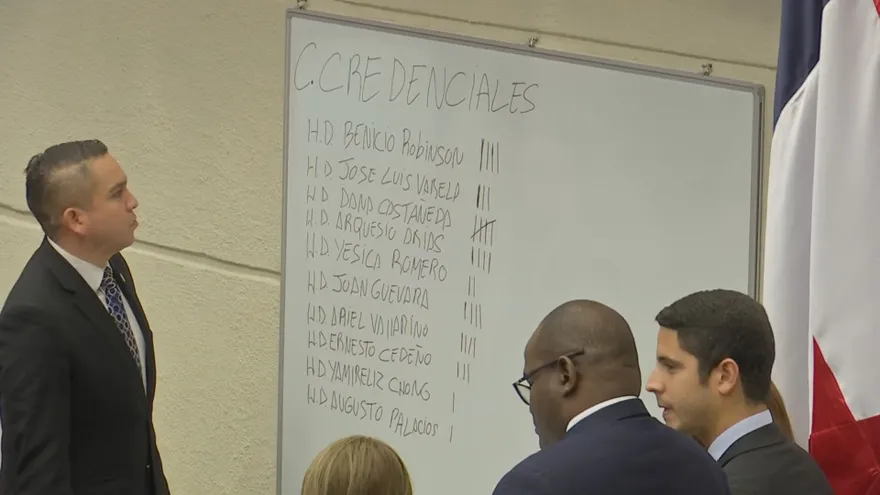 C. CREDENCIALES
H.D. BENICIO RObinSON ||||
H.D. JOSE LUIS VARELA |||
H.D DANA CASTAÑEDA
H.D. ARQUESIO ARIAS ||||
H.D. YESICA ROMERO ||
H.D. JUAN GUEVARA ||||
H.D. ARIEL VALLARINO ||||
H.D ERNESTO CEDEÑO |||
H.D YAMIRELIZ CHONG |
H.D AUGUSTO PALACIOS |